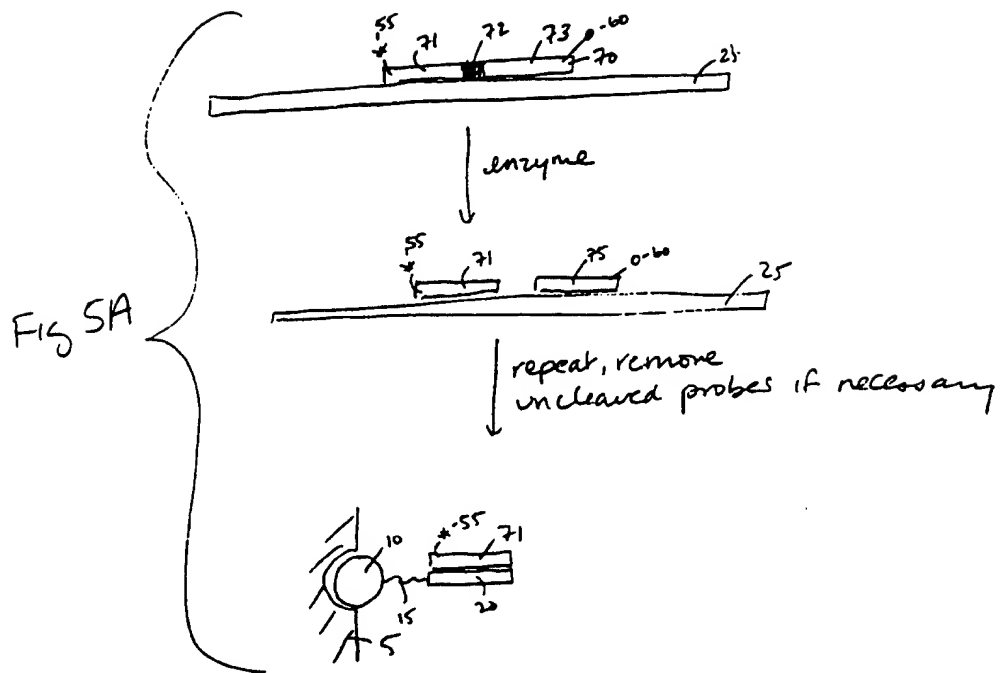 55 * 71 72 73 0-60 70 25
enzyme
55 * 71 75 0-60 25
Fig 5A
repeat, remove
uncleaved probes if necessary
10 *-55 71
15 20
5